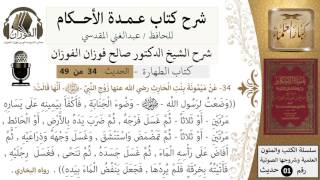 شرح كتاب عمدة الأحكام
للحافظ / عبدالغني المقدسي
شرح الشيخ الدكتور صالح فوزان الفوزان
كتاب الطهارة - الحديث 34 من 49
34- عَنْ مَيْمُونَةَ بِنْتِ الْحَارِثِ رضي الله عنها زَوْجِ النَّبِيِّ ﷺ - أَنَّهَا قَالَتْ:
(وَضَعْتُ لِرَسُولِ اللَّهِ ﷺ - وَضُوءَ الْجَنَابَةِ، فَأَكْفَأَ بِيَمِينِهِ عَلَى يَسَارِهِ
مَرَّتَيْنِ - أَوْ ثَلَاثًا - ثُمَّ غَسَلَ فَرْجَهُ، ثُمَّ ضَرَبَ يَدَهُ بِالْأَرْضِ، أَوْ الْحَائِطِ،
مَرَّتَيْنِ - أَوْ ثَلَاثًا - ثُمَّ تَمَضْمَضَ وَاسْتَنْشَقَ، وَغَسَلَ وَجْهَهُ وَذِرَاعَيْهِ، ثُمَّ
أَفَاضَ عَلَى رَأْسِهِ الْمَاءَ، ثُمَّ غَسَلَ جَسَدَهُ، ثُمَّ تَنَحَّى، فَغَسَلَ رِجْلَيْهِ،
رواه البخاري
الفوزان
كبار العلماء
سلسلة الكتب والمتون
العلمية وشروحها الصوتية
رقم 01 حديث